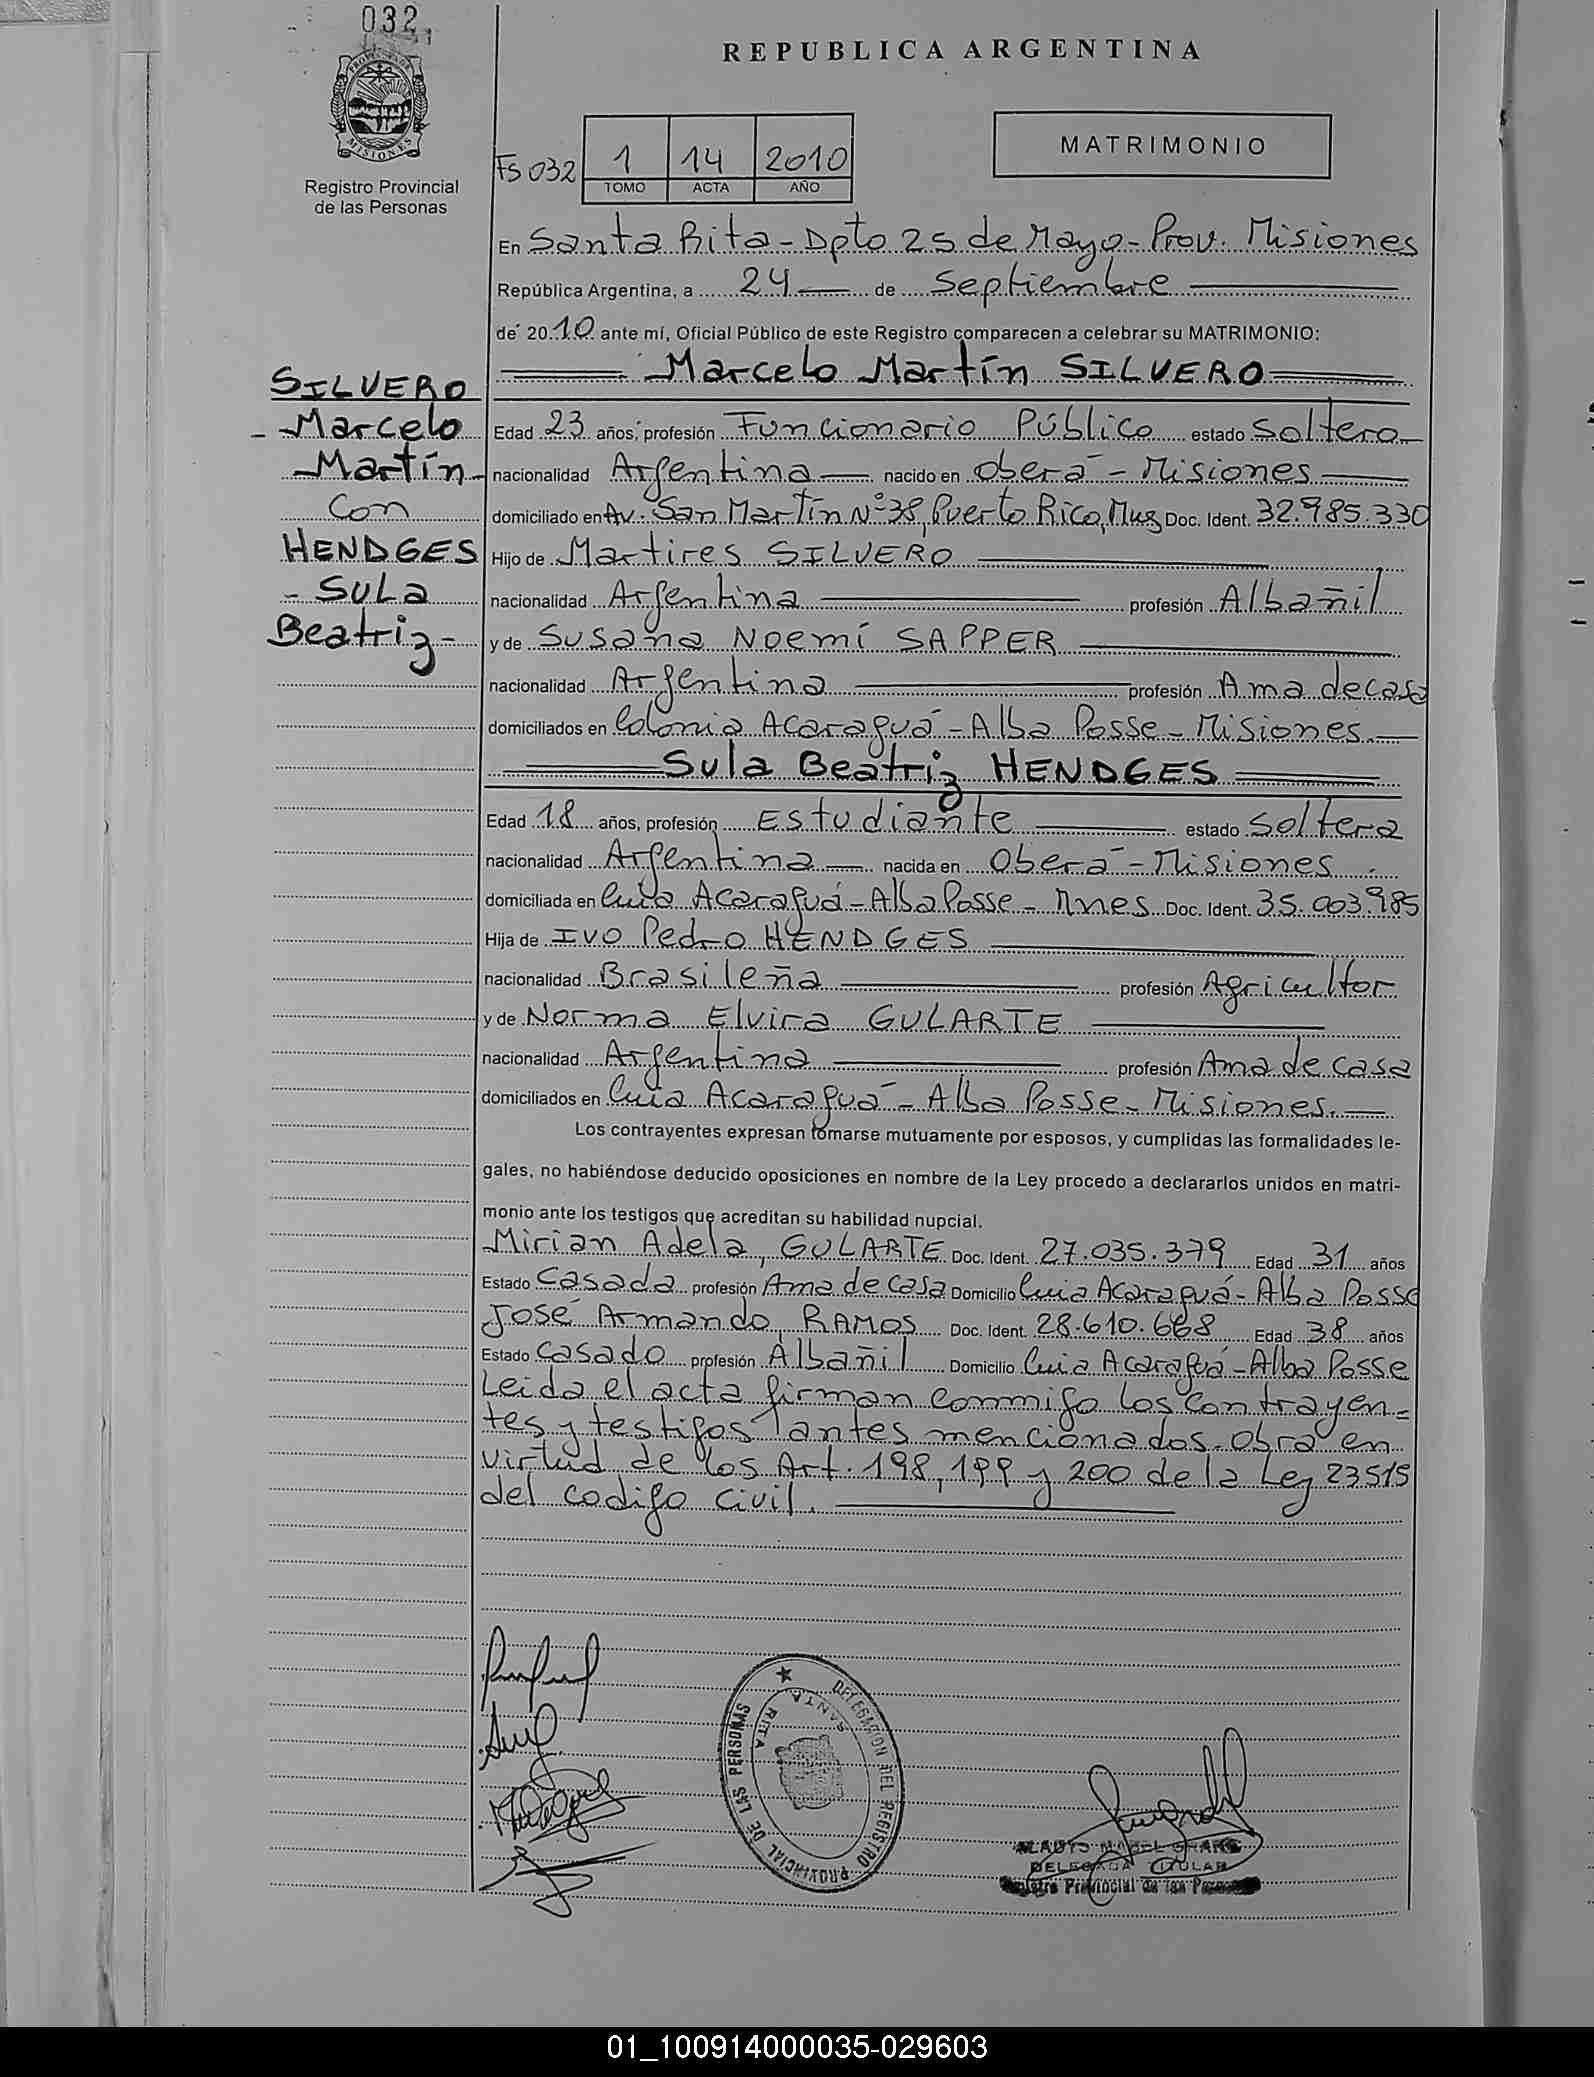 032
REPUBLICA ARGENTINA
PROVINCIA DE
MISIONES
Registro Provincial
de las Personas
Fs 032
1 14 2010
TOMO ACTA AÑO
MATRIMONIO
En Santa Rita - Dpto 25 de Mayo - Prov. Misiones
República Argentina, a 24 de Septiembre
de 2010 ante mí, Oficial Público de este Registro comparecen a celebrar su MATRIMONIO:
Marcelo Martín SILVERO
SILVERO
Marcelo
Martín
Con
HENDGES
- Sula
Beatriz -
Edad 23 años, profesión Funcionario Público estado Soltero
nacionalidad Argentina nacido en Oberá - Misiones
domiciliado en Av. San Martín N° 38, Puerto Rico, Mnes Doc. Ident. 32.985.330
Hijo de Martires SILVERO
nacionalidad Argentina profesión Albañil
y de Susana Noemí SAPPER
nacionalidad Argentina profesión Ama de casa
domiciliados en Colonia Acaraguá - Alba Posse - Misiones.
Sula Beatriz HENDGES
Edad 18 años, profesión Estudiante estado Soltera
nacionalidad Argentina nacida en Oberá - Misiones
domiciliada en Cnia Acaraguá - Alba Posse - Mnes Doc. Ident. 35.003.985
Hija de Ivo Pedro HENDGES
nacionalidad Brasileña profesión Agricultor
y de Norma Elvira GULARTE
nacionalidad Argentina profesión Ama de casa
domiciliados en Cnia Acaraguá - Alba Posse - Misiones.
Los contrayentes expresan tomarse mutuamente por esposos, y cumplidas las formalidades le-
gales, no habiéndose deducido oposiciones en nombre de la Ley procedo a declararlos unidos en matri-
monio ante los testigos que acreditan su habilidad nupcial.
Mirian Adela, GULARTE Doc. Ident. 27.035.379 Edad 31 años
Estado Casada profesión Ama de casa Domicilio Cnia Acaraguá - Alba Posse
José Armando, RAMOS Doc. Ident. 28.610.668 Edad 38 años
Estado Casado profesión Albañil Domicilio Cnia Acaraguá - Alba Posse
Leida el acta firman conmigo los contrayen=
tes y testigos antes mencionados. Obra en
virtud de los Art. 198, 199 y 200 de la Ley 23515
del codigo civil.
DELEGACION DEL REGISTRO PROVINCIAL DE LAS PERSONAS
SANTA RITA
GLADYS MABEL
DELEGADA TITULAR
Registro Provincial de las Personas
01_100914000035-029603